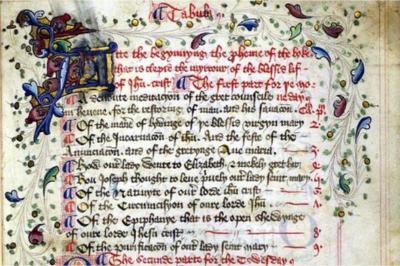 Tabula
Atte the begynnyng the proheme of the boke
that is cleped the myrrour of the blessed lyf
of Jhu crist. The first part for þe mo
A devoute meditacion of the gret counseile
in hevene for the restoring of man and his savacion
Of the manere of lyvinge of þe blessed virgyn mary 2
Of the Incarnacion of Jhu. And the feste of the
Annunciacion. And of the gretynge Ave maria. 3
How oure lady wente to Elizabeth & mekely gret hir 4
How Joseph thought to leve prively oure lady seint mary
Of the Natiuyte of oure lorde jhu crist
Of the Circumcision of oure lorde Jhu crist
Of the Epiphanye that is the open shewynge
of oure lorde Jhesu crist
Of the Purificacion of oure lady seint mary 9
The Secunde parte for the Tewesday